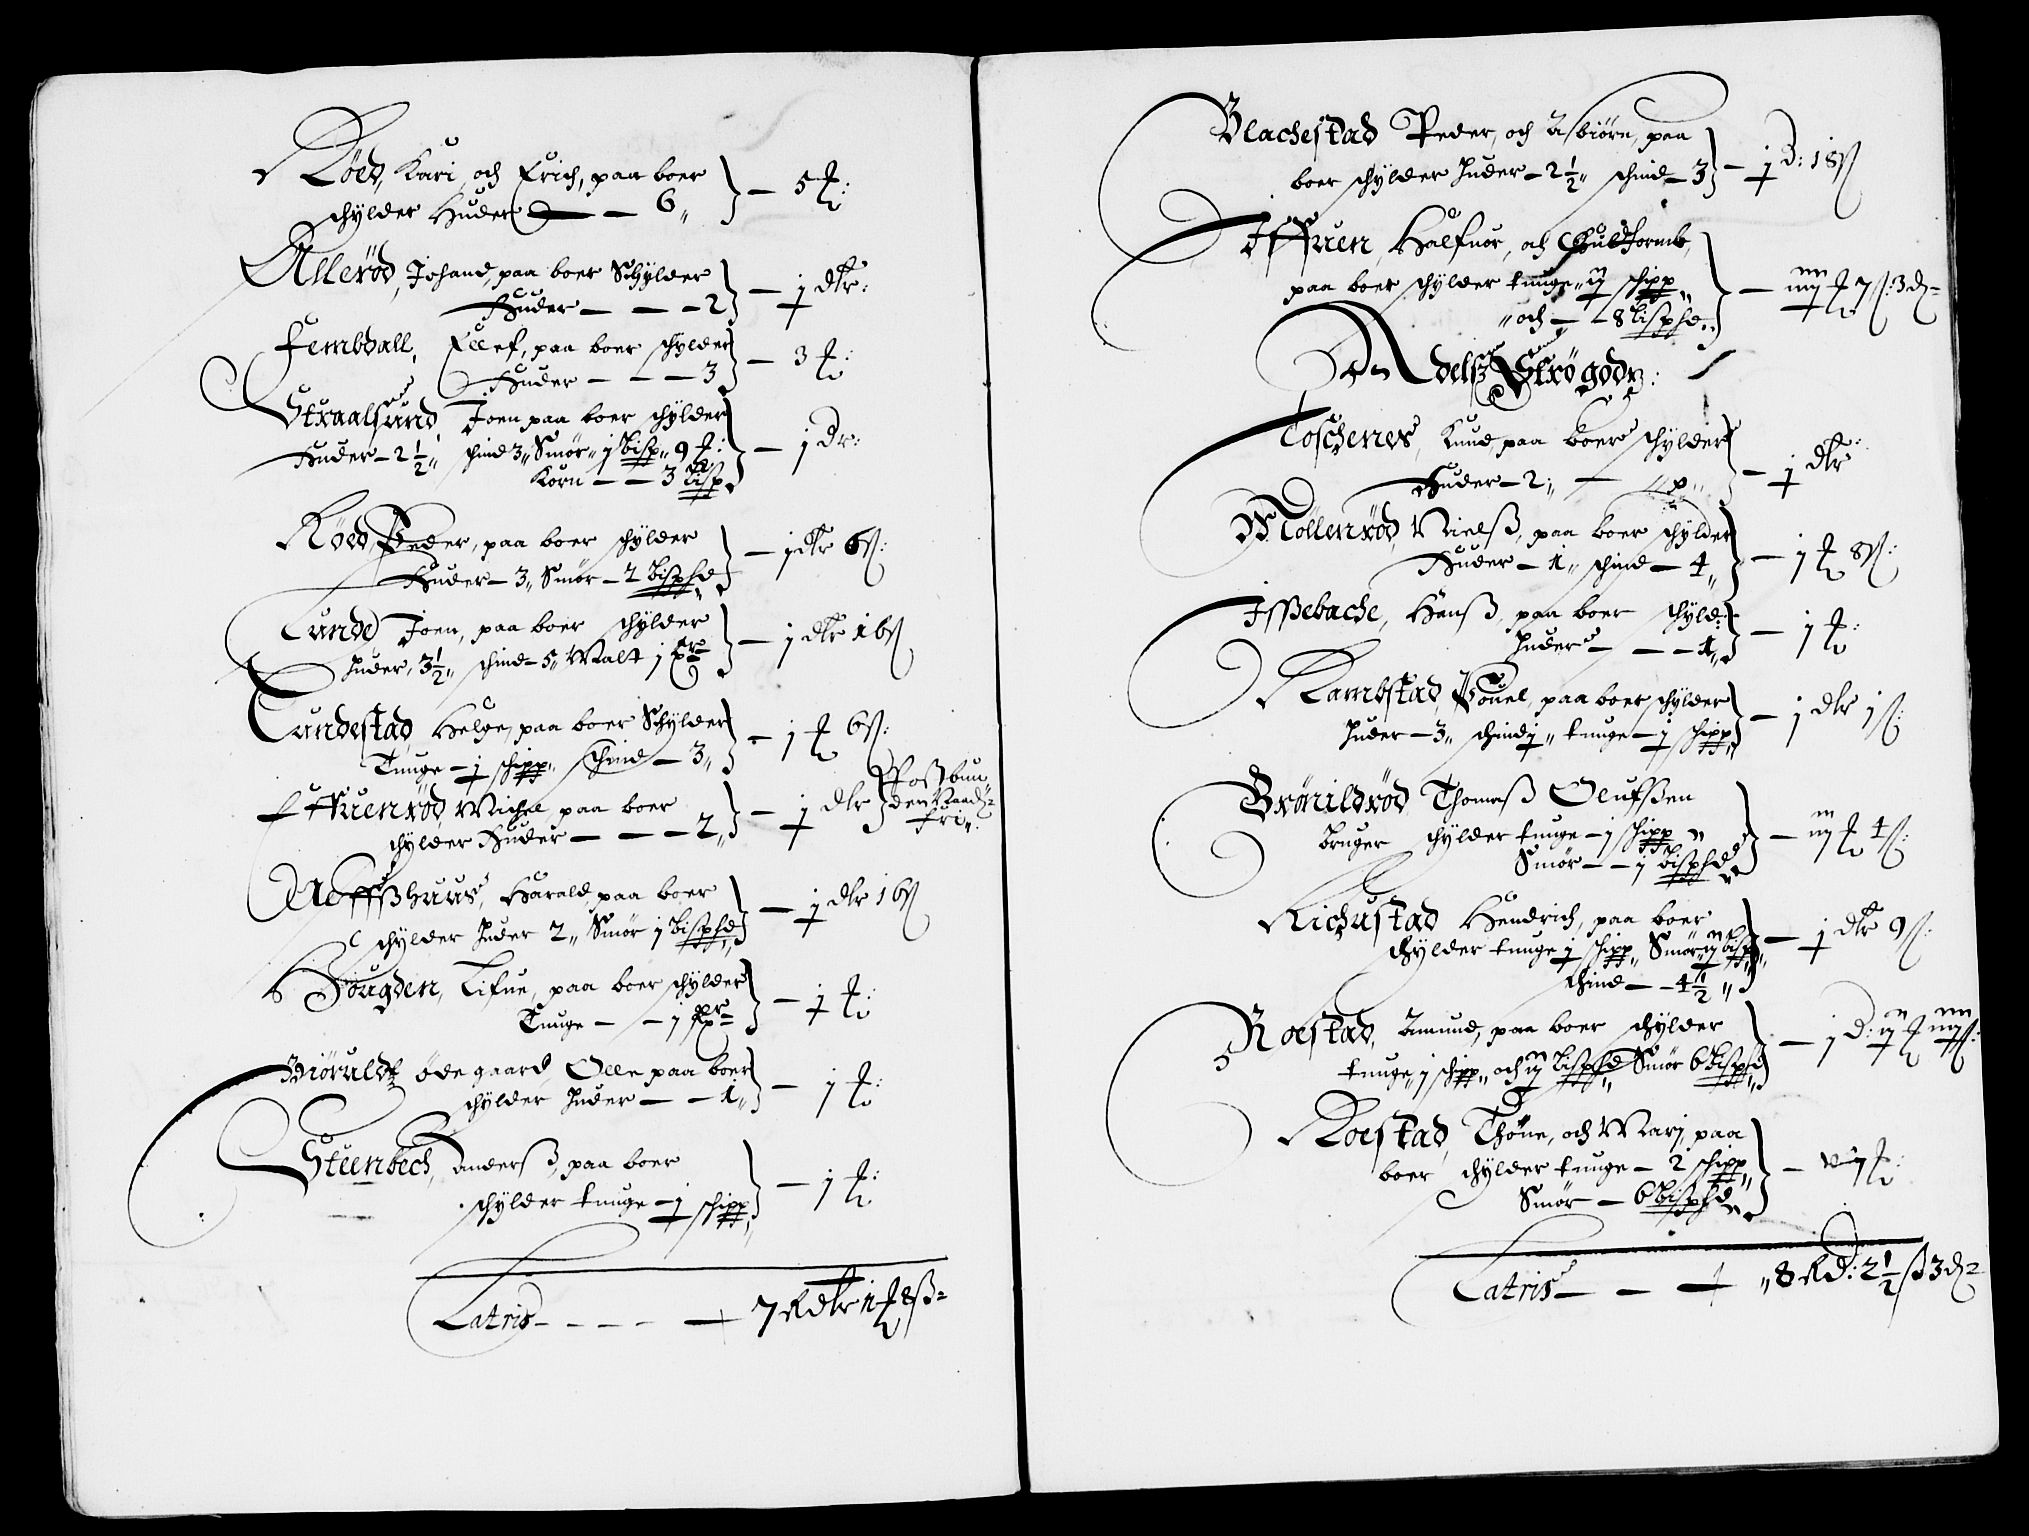 Röed, Kari, och Erich, paa boer
schylder Huder — — 6 — 5 ₤:
Alleröd, Johand, paa boer Schylder
Huder — — — 2 — j dlr:
Fembdall, Ellef, paa boer schylder
Huder — — — 3 — 3 ₤:
Straalsund, Joen paa boer schylder
Huder — 2½ schind 3 Smör j bisp 9 ₤: — j Dr:
Korn — — 3 bisp
Röed, Peder, paa boer schylder
Huder — 3 Smör — 2 bispd — j dlr 6 ß:
Lunde Joen, paa boer schylder
Huder, 3½ schind — 5 Malt j — j dlr 16 ß
Lundestad, Helge, paa boer Schylder
Tunge — j schipp schind — 3 — j ₤ 6 ß:
Michel, paa boer
schylder Huder — — — 2 — j dlr
fri
Harald, paa boer
schylder Huder 2 Smör j bispd — j dlr 16 ß
Hougden, Lifue, paa boer schylder
Tunge — — j — j ₤:
öde gaard, Olle paa boer
schylder Huder — — 1 — j ₤:
Steenbech, Anderß, paa boer
schylder tunge — j schipp — j ₤:
Latris — — — — 7 Rdlr ij ₤ 8 ß
Blachestad Peder, och Asbiörn, paa
boer schylder Huder — 2½ schind — 3 — j D: 18 ß
Halfuor, och Guldtormb,
paa boer schylder tunge ij schipp — iiij ₤ 7 ß: 3 d
och — — 8 bispd
Adelß Strögodtz:
Toschernes, Knud, paa boer schylder
Huder — 2 — j dlr
Möllerröd, Nielß, paa boer schylder
Huder — 1 schind — 4 — j ₤ 8 ß:
Issebache, Hanß, paa boer schyld:
Huder — — — 1 — j ₤:
Kambstad, Pouel, paa boer schylder
Huder — 3 schind j tunge — j schipp — j dlr 1 ß:
Grönildröd Thomaß Olufßen
bruger schylder tunge — j schipp — iij ₤ 4 ß:
Smör — — j bispd
Richustad Hendrich, paa boer
schylder tunge j schipp Smör ij bisp — j dlr 9 ß:
schind — — 4½
Roestad, Amund, paa boer schylder
tunge j schipp och ij bispd Smör 6 bispd — j D: ij ₤ iiij ß:
Roestad, Thöne, och Marj, paa
boer schylder tunge — 2 schipp — vij ₤:
Smör — 6 bispd
Latris — — — 8 Rd: 2½ ß 3 d